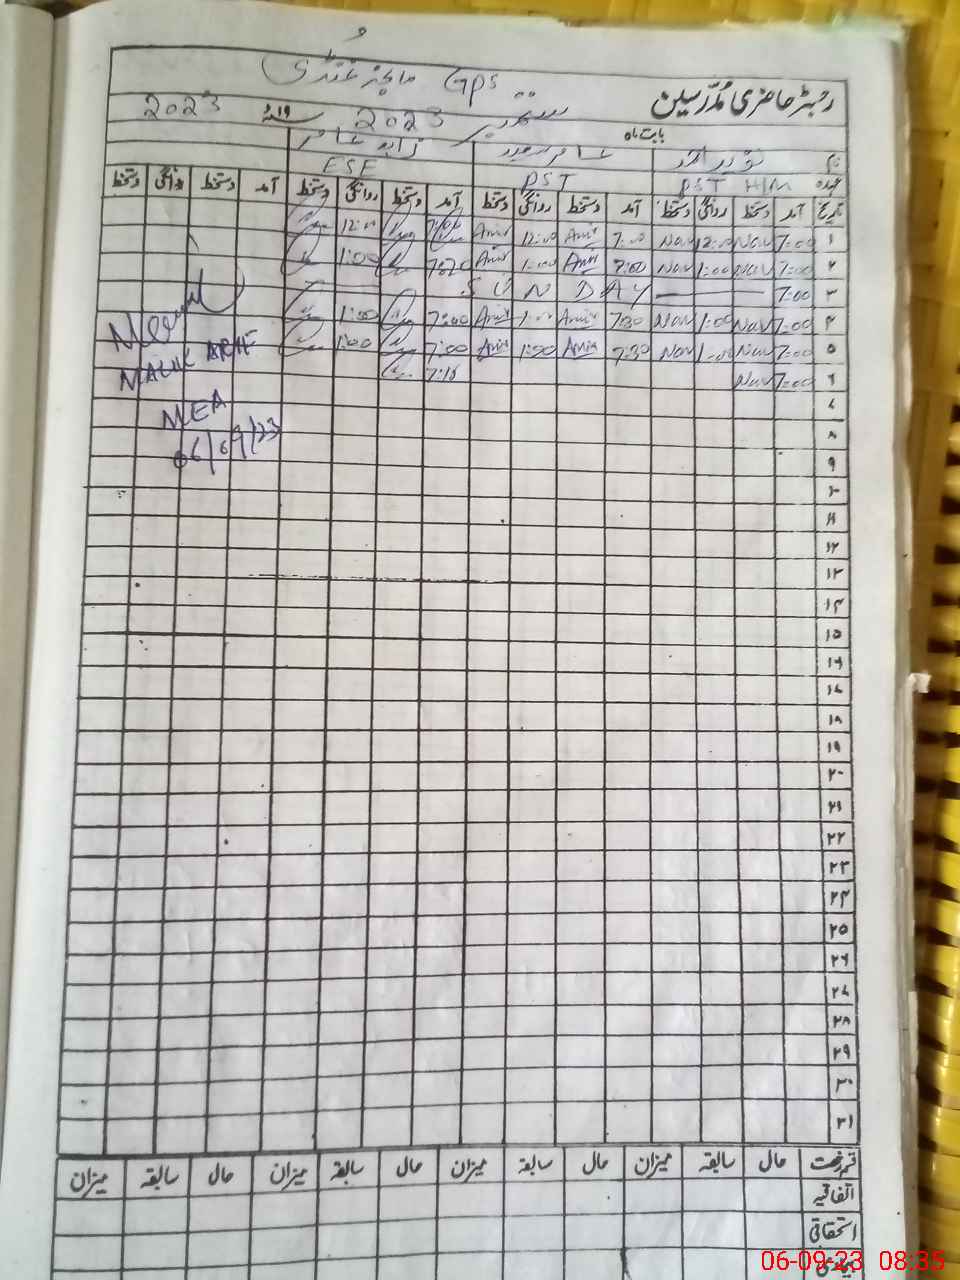 GPS
رجسٹر حاضری مُدرّسین
بابت ماہ ستمبر 2023 ۱۹ء 2023
نام
عہدہ PST H/M PST ESE
تاریخ آمد دستخط روانگی دستخط آمد دستخط روانگی دستخط آمد دستخط روانگی دستخط آمد دستخط روانگی دستخط
۱ 7:00 Nav 12:00 Nav 7:00 Amir 12:00 Amir 7:00 12:00
۲ 7:00 Nav 1:00 Nav 7:00 Amir 1:00 Amir 7:20 1:00
۳ 7:00 SUNDAY
۴ 7:00 Nav 1:00 Nav 7:30 Amir 1:00 Amir 7:00 1:00
۵ 7:00 Nav 1:00 Nav 7:30 Amir 1:00 Amir 7:00 1:00
۶ 7:00 Nav 7:15
MALIK ARIF
MEA
06/09/23
۷
۸
۹
۱۰
۱۱
۱۲
۱۳
۱۴
۱۵
۱۶
۱۷
۱۸
۱۹
۲۰
۲۱
۲۲
۲۳
۲۴
۲۵
۲۶
۲۷
۲۸
۲۹
۳۰
۳۱
قسم رخصت حال سابقہ میزان حال سابقہ میزان حال سابقہ میزان حال سابقہ میزان
اتفاقیہ
استحقاقی
بیماری
06-09-23 08:35